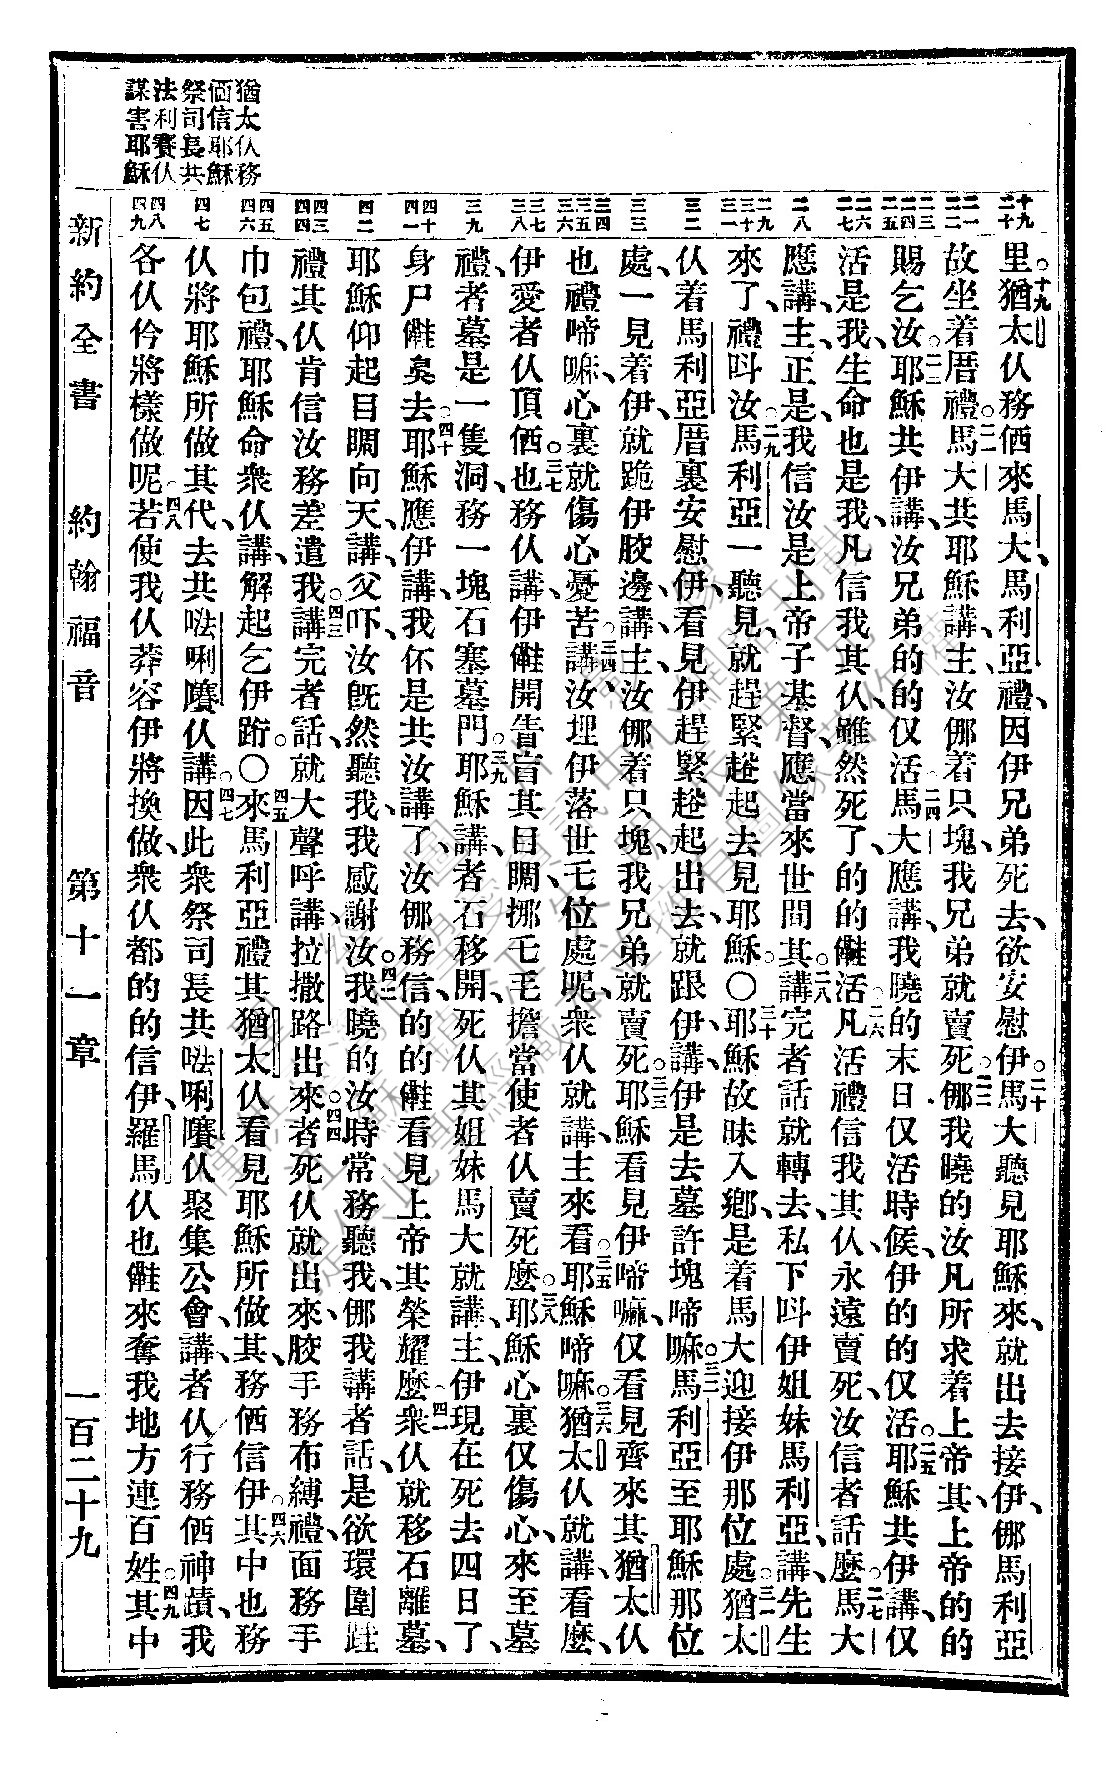 猶太仫務
㑚信耶穌
祭司長共
法利賽仫
謀害耶穌
十九 二十
二一 二二 二三
二四 二五
二六 二七
二八
二九 三十 三一
三二
三三
三四 三五 三六
三七 三八
三九
四十 四一
四二
四三 四四
四五 四六
四七
四八 四九
里。十九猶太仫務㑚來馬大、馬利亞禮、因伊兄弟死去、欲安慰伊。二十馬大聽見耶穌來、就出去接伊、㑚馬利亞
故坐着厝禮。二一馬大共耶穌講、主、汝㑚着只塊、我兄弟就賣死。二二㑚我曉的汝凡所求着上帝其、上帝的的
賜乞汝。二三耶穌共伊講、汝兄弟的的仅活。二四馬大應講、我曉的末日仅活時候、伊的的仅活。二五耶穌共伊講、仅
活是我、生命也是我、凡信我其仫、雖然死了、的的㒰活。二六凡活禮信我其仫、永遠賣死、汝信者話麽。二七馬大
應講、主、正是、我信汝是上帝子基督、應當來世間其。二八講完者話、就轉去、私下呌伊姐妹馬利亞、講、先生
來了、禮呌汝。二九馬利亞一聽見、就趕緊趒起去見耶穌。○三十耶穌故昧入鄉、是着馬大迎接伊那位處。三一猶太
仫着馬利亞厝裏安慰伊、看見伊趕緊趒起出去、就跟伊、講、伊是去墓許塊啼嘛。三二馬利亞至耶穌那位
處、一見着伊、就跪伊骹邊、講、主、汝㑚着只塊、我兄弟就賣死。三三耶穌看見伊啼嘛、仅看見齊來其猶太仫
也禮啼嘛、心裏就傷心憂苦。三四講、汝埋伊落世乇位處呢、衆仫就講、主、來看。三五耶穌啼嘛。三六猶太仫就講、看麽、
伊愛者仫頂㑚。三七也務仫講、伊㒰開青盲其目睭、挪乇毛擔當使者仫賣死麽。三八耶穌心裏仅傷心、來至墓
禮、者墓是一隻洞、務一塊石塞墓門。三九耶穌講、者石移開、死仫其姐妹馬大就講、主、伊現在死去四日了、
身尸㒰臭去。四十耶穌應伊講、我伓是共汝講了、汝㑚務信、的的㒰看見上帝其榮耀麽。四一衆仫就移石離墓、
耶穌仰起目睭向天、講、父吓、汝旣然聽我、我感謝汝。四二我曉的汝時常務聽我、㑚我講者話、是欲環圍跬
禮其仫肯信汝務差遣我。四三講完者話、就大聲呼講、拉撒路出來。四四者死仫就出來、骹手務布縛禮、面務手
巾包禮、耶穌命衆仫講、解起乞伊跡。○四五來馬利亞禮其猶太仫、看見耶穌所做其、務㑚信伊。四六其中也務
仫將耶穌所做其代、去共𠵽唎㘔仫講。四七因此衆祭司長共𠵽唎㘔仫聚集公會、講、者仫行務㑚神蹟、我
各仫伶將樣做呢。四八若使我仫莽容伊將換做、衆仫都的的信伊、羅馬仫也㒰來奪我地方連百姓。四九其中
新約全書　約翰福音　第十一章　一百二十九